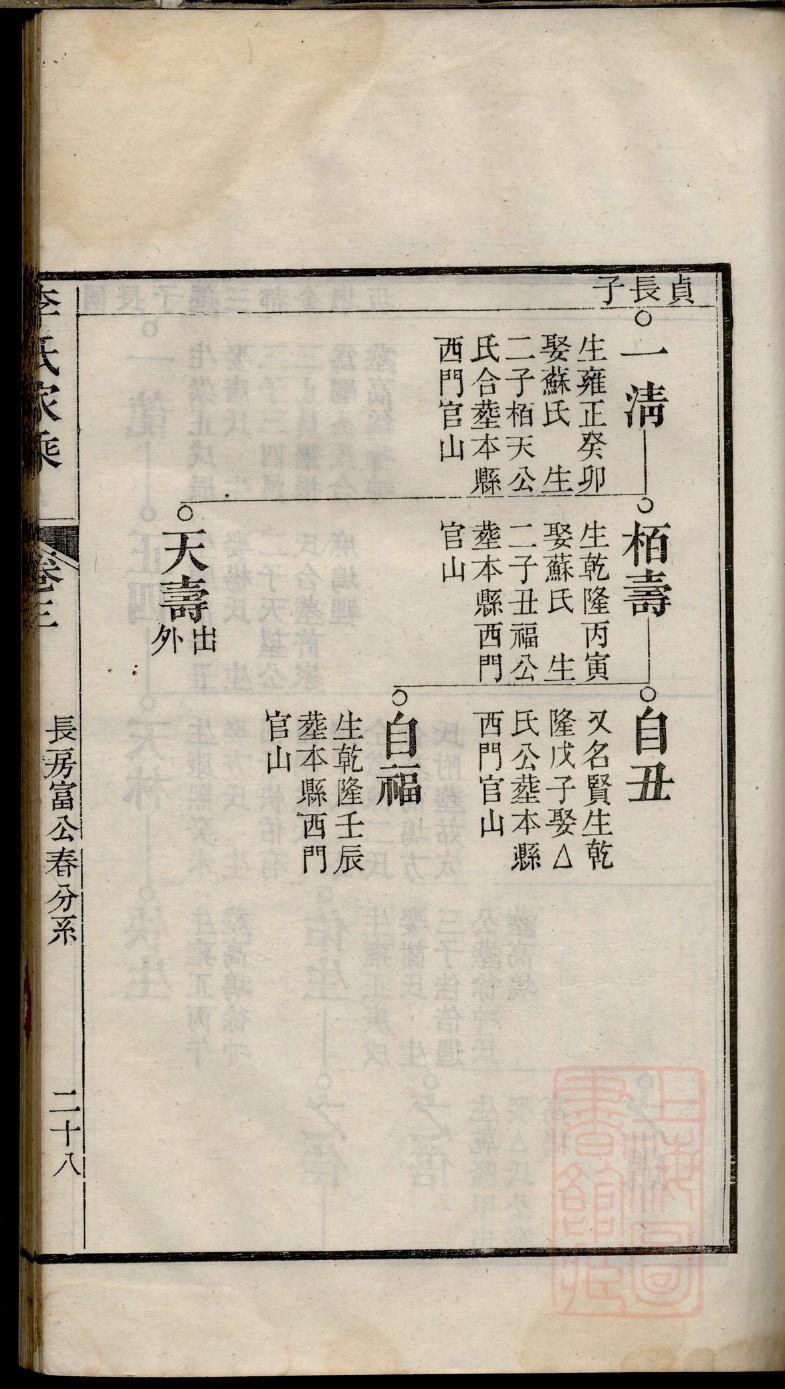 貞長子
一清
生雍正癸卯
娶蘇氏　生
二子栢天公
氏合塟本縣
西門官山
栢壽
生乾隆丙寅
娶蘇氏　生
二子丑福公
塟本縣西門
官山
天壽
出
外
自丑
又名賢生乾
隆戊子娶△
氏公塟本縣
西門官山
自福
生乾隆壬辰
塟本縣西門
官山
李氏家乘
卷三
長房富公春分系
二十八
上海圖書館藏